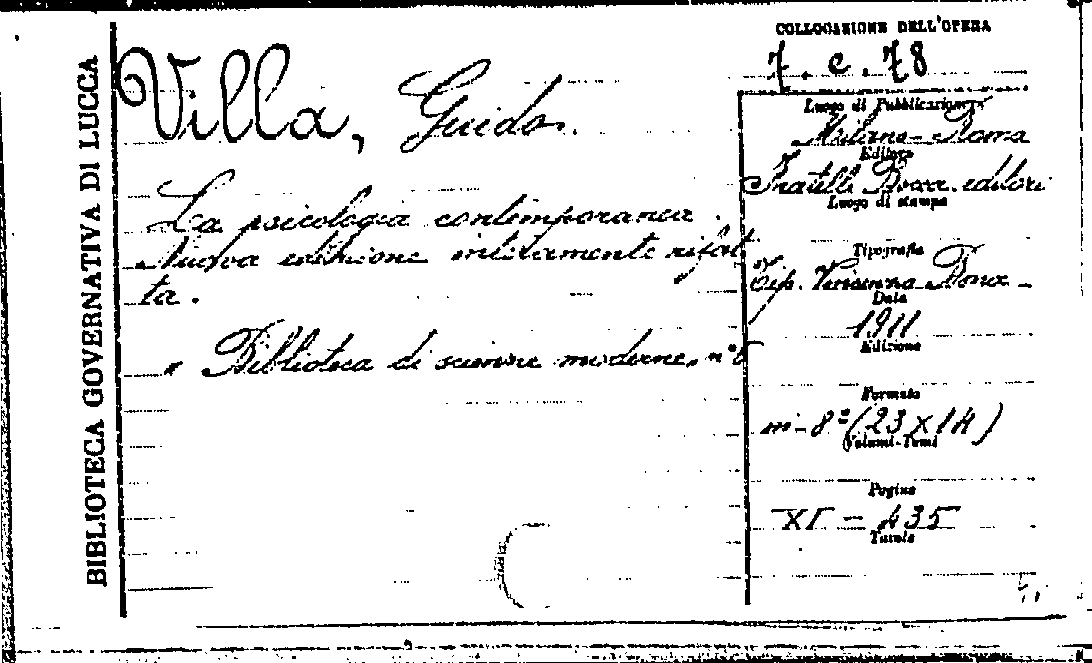 BIBLIOTECA GOVERNATIVA DI LUCCA
Villa, Guido.
La psicologia contemporanea.
Nuova edizione interamente rifat
ta.
" Biblioteca di scienze moderne, n°
COLLOCAZIONE DELL'OPERA
7. c. 78
Luogo di Pubblicazione
Milano-Roma
Editore
Fratelli Bocca editori
Luogo di stampa
Tipografia
Tip. Roma
Data
1911
Edizione
Formato
in-8° (23 x 14)
Volumi-Tomi
Pagine
XI - 435
Tavole